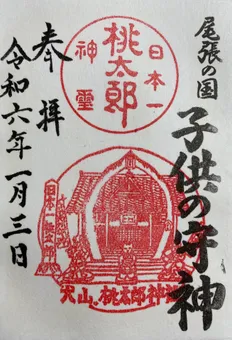 尾張の国
子供の守神
日本一
桃太郎
神霊
日本一
犬山 桃太郎神社
奉拝
令和六年一月三日